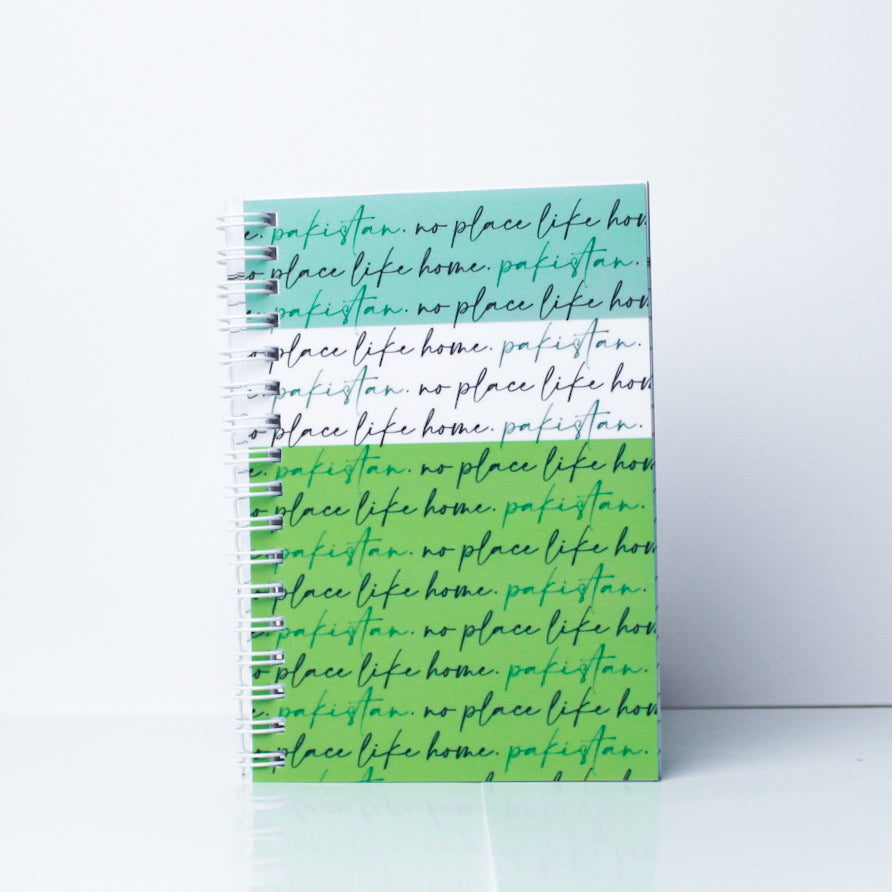 e. pakistan. no place like hom
o place like home. pakistan.
pakistan. no place like hom
o place like home. pakistan.
. pakistan. no place like hom
o place like home. pakistan.
e. pakistan. no place like hom
o place like home. pakistan.
e. pakistan. no place like hom
o place like home. pakistan.
e. pakistan. no place like hom
o place like home. pakistan.
e. pakistan. no place like hom
o place like home. pakistan.